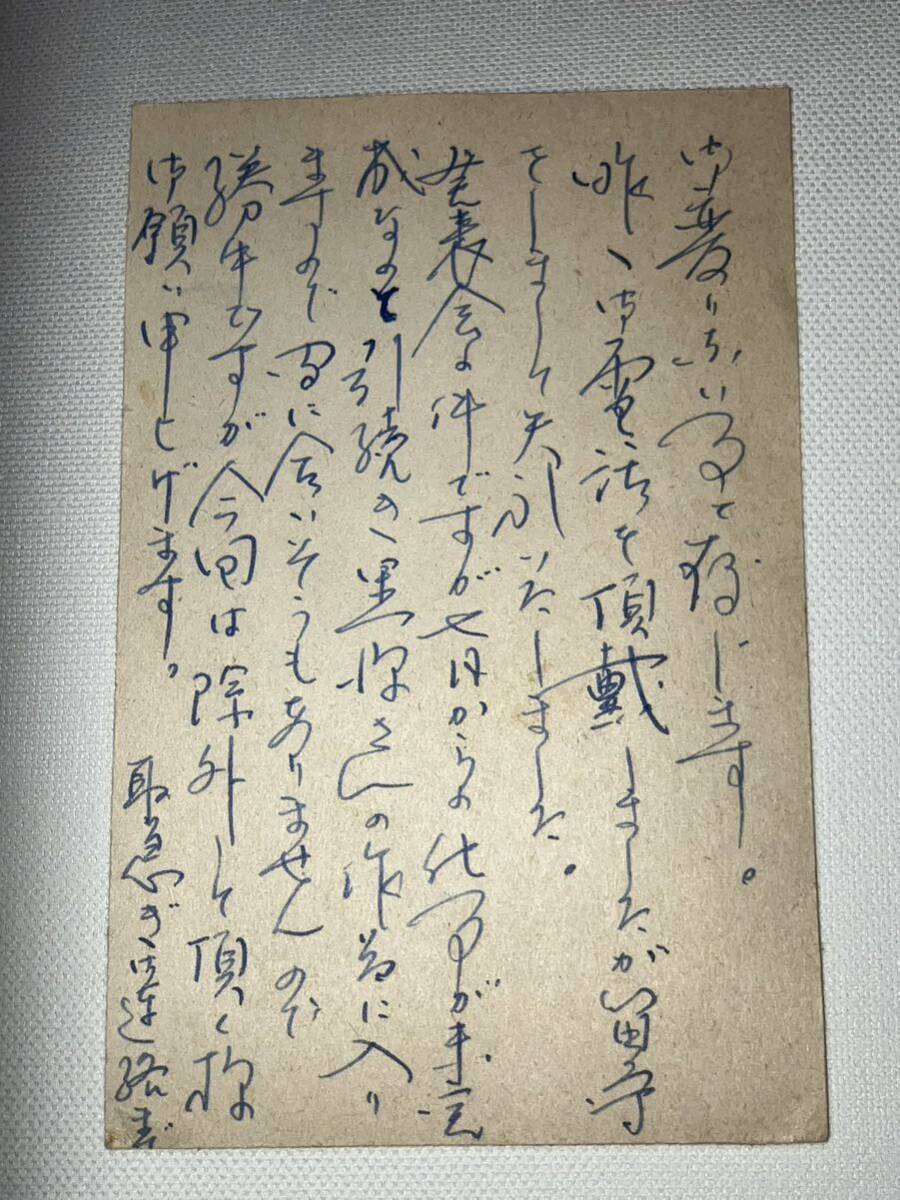 御変りない事と存じます。
昨日御電話を頂戴しましたが留守
をしまして失礼いたしました。
発表会の件ですが七月からの仕事が未完
成なのと引続き黒柳さんの作品に入り
ますので間に合いそうもありませんので
勝手ですが今回は除外して頂く様
御願い申し上げます。
取急ぎ御連絡まで